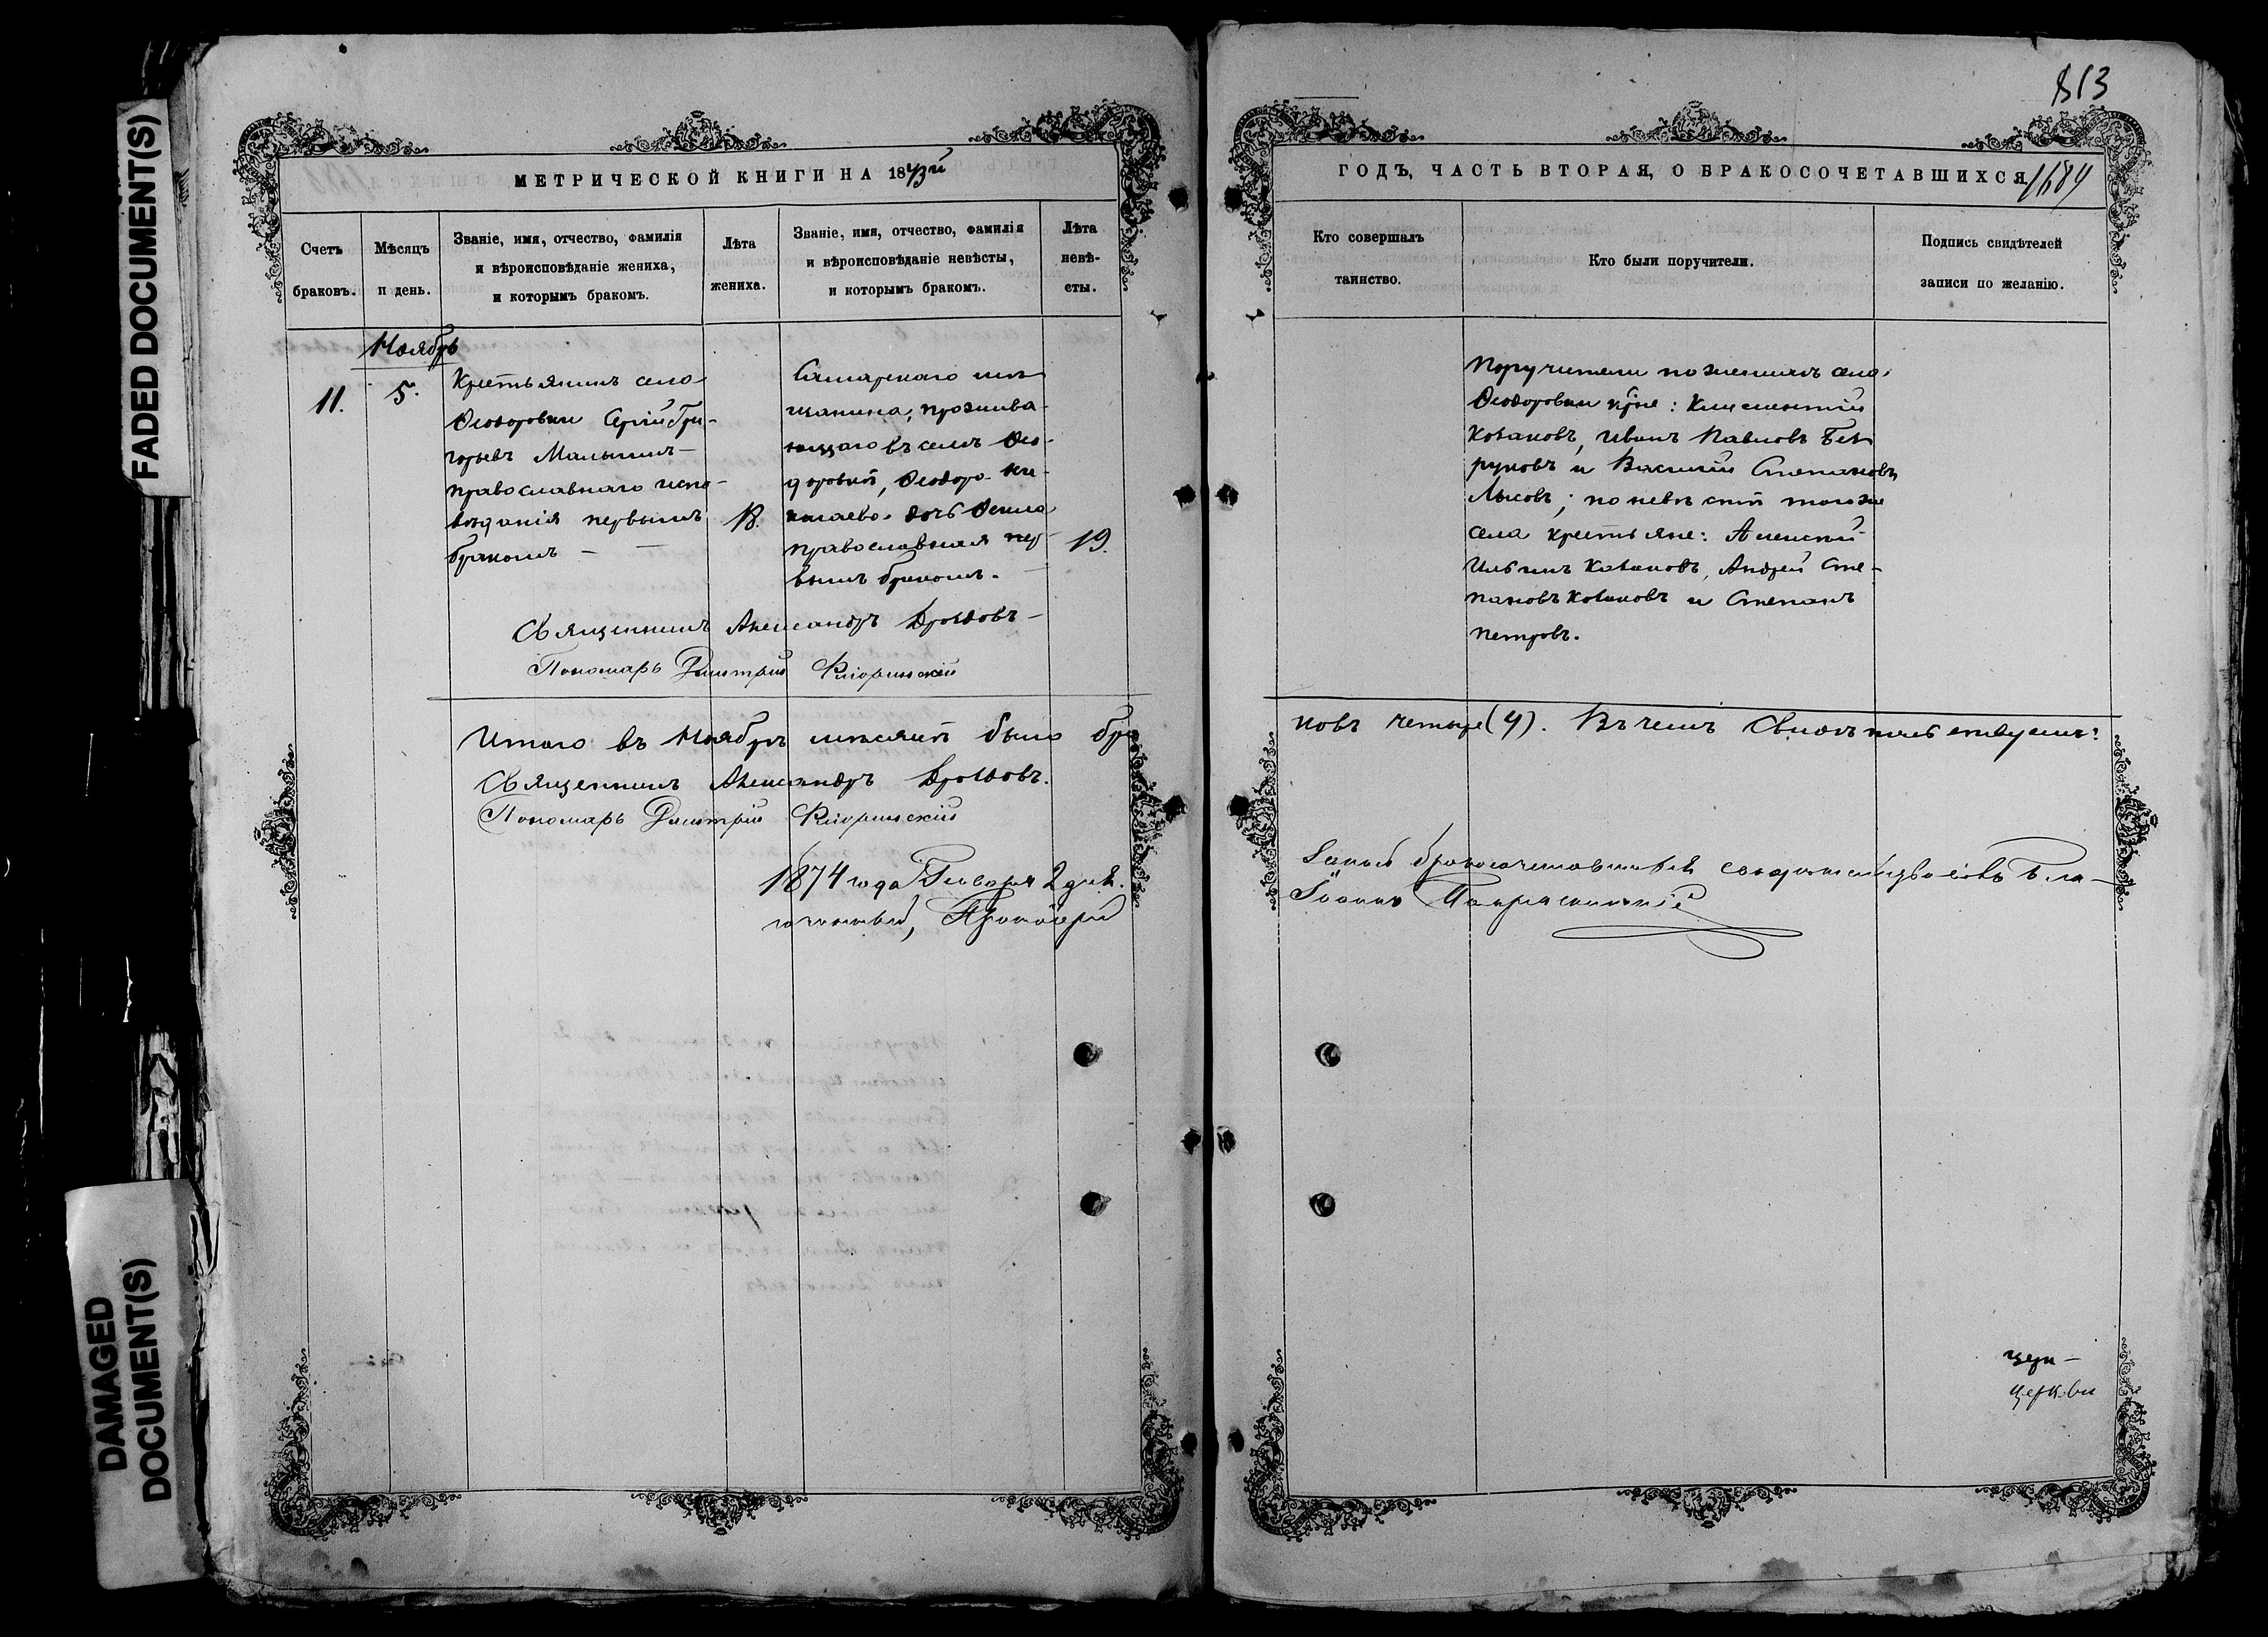 FADED DOCUMENT(S)
DAMAGED
DOCUMENT(S)
МЕТРИЧЕСКОЙ КНИГИ НА 1873й
Счетъ
браковъ.
Мѣсяцъ
и день.
Званіе, имя, отчество, фамилія
и вѣроисповѣданіе жениха,
и которымъ бракомъ.
Лѣта
жениха.
Званіе, имя, отчество, фамилія
и вѣроисповѣданіе невѣсты,
и которымъ бракомъ.
Лѣта
невѣ-
сты.
Ноябрь
11.
5.
Крестьянинъ села
Ѳеодоровки Сергій Гри-
горьевъ Малышинъ
православнаго испо-
вѣданія первымъ
бракомъ
18.
Самарскаго мѣ-
щанина, прожива-
ющаго въ селѣ Ѳео-
доровкѣ, Ѳеодора Ни-
колаева дочь Ѳекла
православная пер-
вымъ бракомъ.
19.
Священникъ Александръ Дроздовъ
Пономарь Димитрій
Итого въ Ноябрѣ мѣсяцѣ было бра
Священникъ Александръ Дроздовъ.
Пономарь Димитрій
1874 года Генваря 2 дня.
Протоіерей
813
ГОДЪ, ЧАСТЬ ВТОРАЯ, О БРАКОСОЧЕТАВШИХСЯ
1684
Кто совершалъ
таинство.
Кто были поручители.
Подпись свидѣтелей
записи по желанію.
Поручители по женихѣ села
Ѳеодоровки кр̃не: Климентій
Казаковъ, Иванъ Павловъ
и Василій Степановъ
Лысовъ; по невѣстѣ того же
села крестьяне: Алексѣй
Ильинъ Казаковъ, Андрей Сте-
пановъ Казаковъ и Степанъ
Петровъ.
ковъ четыре (4). Въ чемъ свидѣтельствуемъ:
бракосочетавшихся
Іоаннъ
церк-
церкви